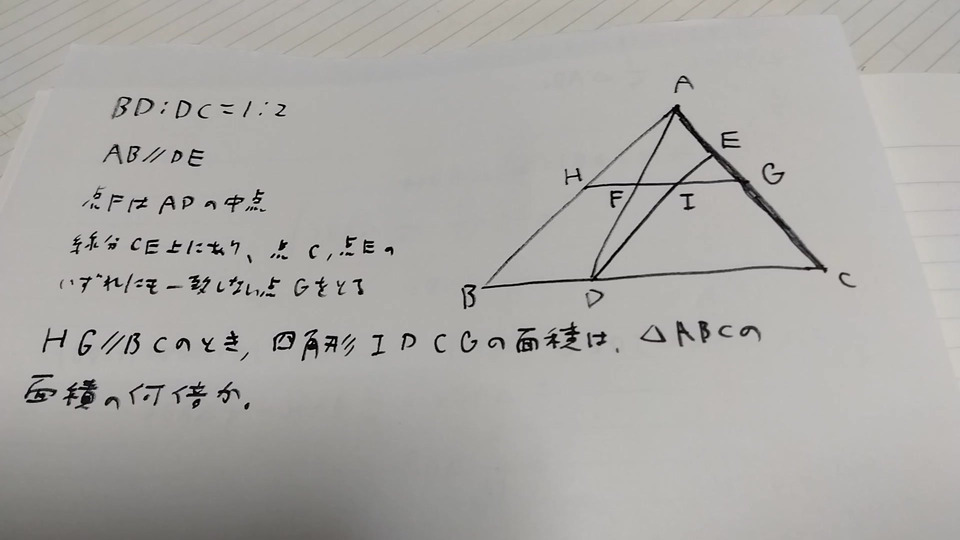 BD:DC=1:2
AB//DE
点FはADの中点
線分CE上にあり、点C,点Eの
いずれにも一致しない点Gをとる
HG//BCのとき,四角形IDCGの面積は,△ABCの
面積の何倍か。
A
E
H
G
F
I
B
D
C